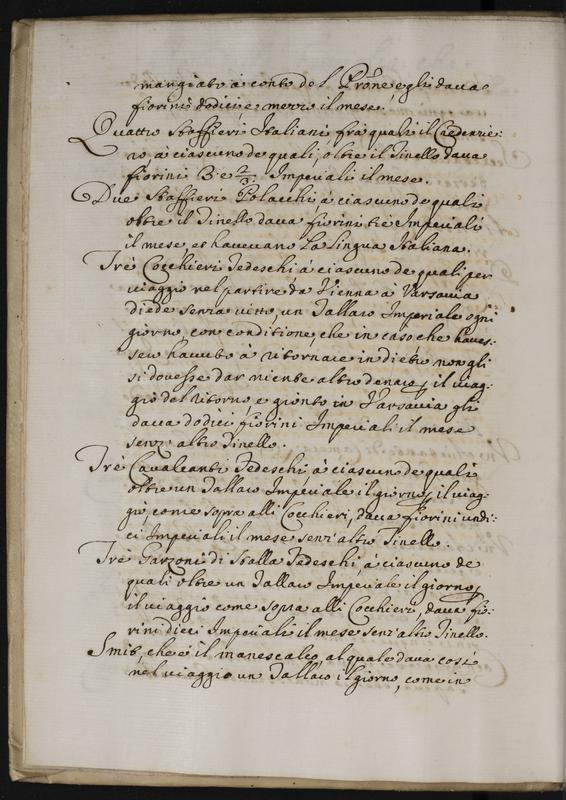 mangiato à conto del Prõne, egli dava
fiorini dodici e mezzo il mese.
Quattro Staffieri Italiani frà quali il Credenzie:
ro, à ciascuno de quali, oltre il Tinello dava
fiorini 3 e Imperiali il mese.
Due Staffieri Polacchi, à ciascuno de quali
oltre il Tinello dava fiorini trè Imperiali
il mese, et havevano la lingua Italiana.
Trè Cocchieri Tedeschi à ciascuno de quali per
viaggio nel partire da Vienna à Varsavia
diede senza vitto, un Tallaro Imperiale ogni
giorno, con conditione, che in caso che haves:
sero havuto à ritornare indietro non gli
si dovesse dar niente altro denaro il viag:
gio del ritorno, e gionto in Varsavia gli
dava dodici fiorini Imperiali il mese
senz' altro Tinello.
Trè Cavalcanti Tedeschi à ciascuno de quali
oltre un Tallaro Imperiale il giorno il viag:
gio, come sopra alli Cocchieri, dava fiorini undi:
ci Imperiali il mese senz' altro Tinello.
Trè Garzoni di Stalla Tedeschi, à ciascuno de
quali oltre un Tallaro Imperiale il giorno
il viaggio come sopra alli Cocchieri, dava fio:
rini dieci Imperiali il mese senz' altro Tinello.
Smit, che è il manescalco, al quale dava così
nel viaggio un Tallaro il giorno, come in